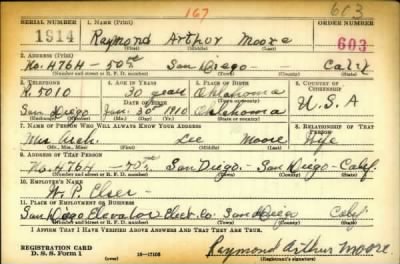 167
603
SERIAL NUMBER
1. NAME (Print)
ORDER NUMBER
1914
Raymond Arthur Moore
603
2. ADDRESS (Print)
No. 4764 - 50th San Diego - Calif
(Number and street or R. F. D. number) (Town) (County) (State)
3. TELEPHONE
4. AGE IN YEARS
5. PLACE OF BIRTH
6. COUNTRY OF CITIZENSHIP
R. 5010
30 years
Oklahoma
DATE OF BIRTH
(Town or county)
San Diego
Jan. 30th 1910
Oklahoma
U.S.A
(Exchange) (Number)
(Mo.) (Day) (Yr.)
(State or country)
7. NAME OF PERSON WHO WILL ALWAYS KNOW YOUR ADDRESS
8. RELATIONSHIP OF THAT PERSON
Mrs Lee Moore Wife
(Mr., Mrs., Miss) (First) (Middle) (Last)
9. ADDRESS OF THAT PERSON
No. 4764 - 50th San Diego - San Diego - Calif.
(Number and street or R. F. D. number) (Town) (County) (State)
10. EMPLOYER'S NAME
P.
11. PLACE OF EMPLOYMENT OR BUSINESS
San Diego Elevator Elect. Co. San Diego Calif.
(Number and street or R. F. D. number) (Town) (County) (State)
I AFFIRM THAT I HAVE VERIFIED ABOVE ANSWERS AND THAT THEY ARE TRUE.
REGISTRATION CARD
D. S. S. Form 1
(over)
16-17105
Raymond Arthur Moore.
(Registrant's signature)